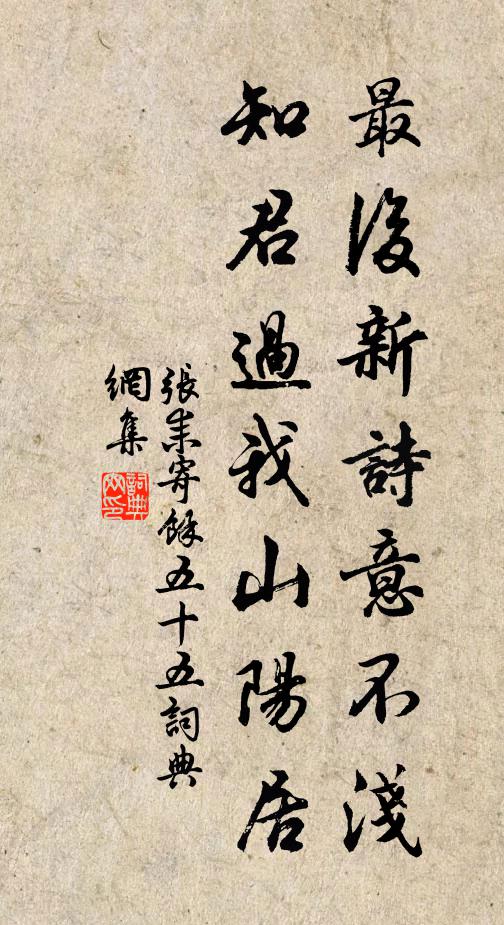 最後新詩意不淺
知君過我山陽居
張耒寄餘五十五詞典
網集
詞典
網印